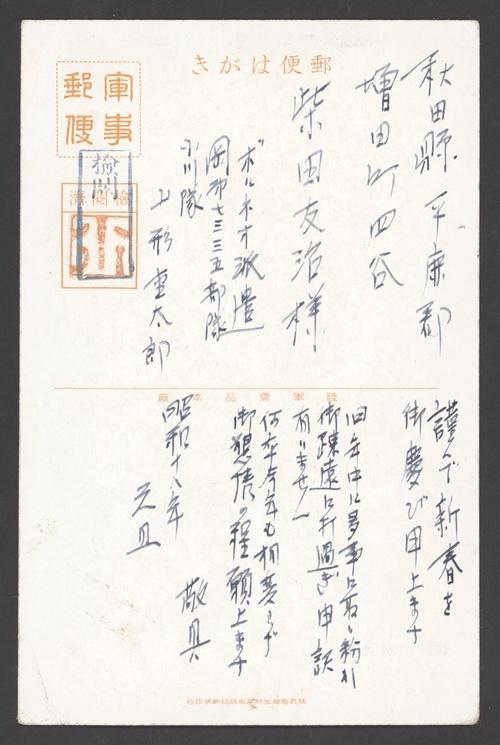 郵便はがき
軍事
郵便
検閲
検閲済
秋田縣 平鹿郡
増田町四谷
柴田友治様
ボルネオ派遣
岡第七三三五部隊
小川隊
山形重太郎
陸軍需品本廠
謹で新春を
御慶び申上ます
旧年中は多事に取り紛れ
御疎遠に打過ぎ申訳
有りません
何卒今年も相変らず
御懇情の程願上ます
敬具
昭和十八年
元旦